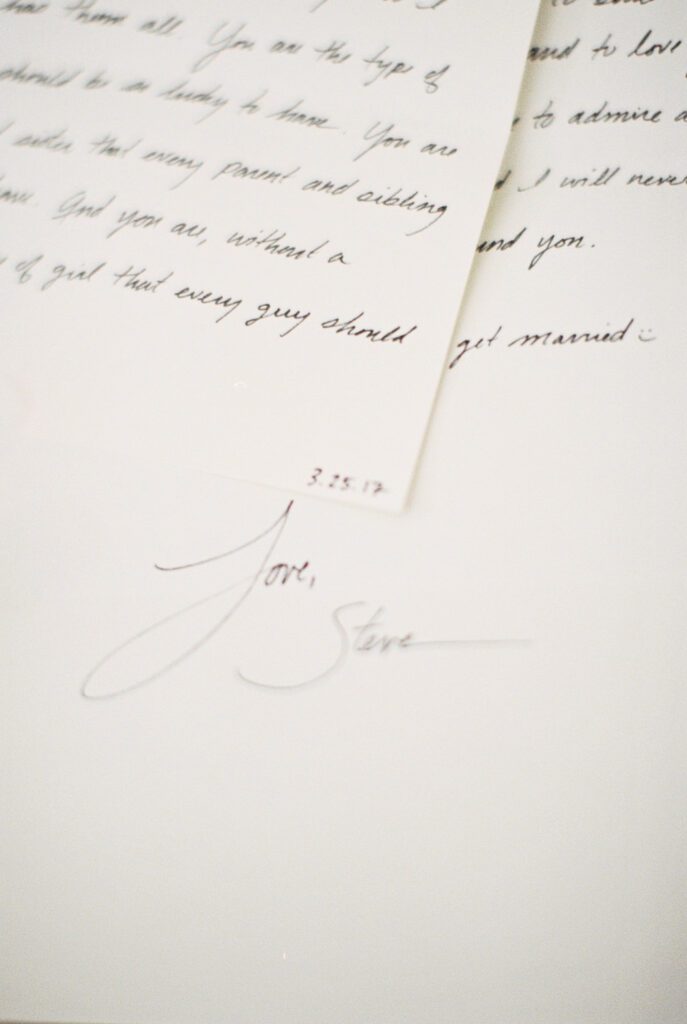 them all. You are the type of
should be so lucky to have. You are
sister that every parent and sibling
have. And you are, without a
of girl that every guy should
3.25.17
and to love
to admire
I will never
and you.
get married :)
Love,
Steve